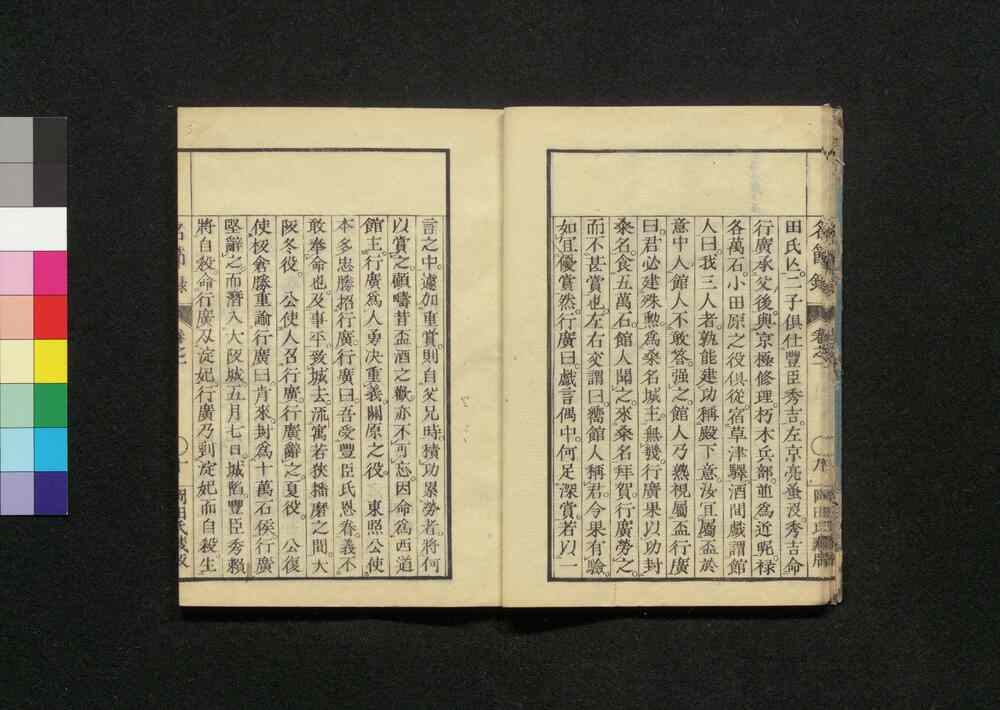 田氏亾二子俱仕豐臣秀吉左京亮蚤沒秀吉命
行廣承父後與京極修理朽木兵部並爲近昵祿
各萬石小田原之役俱從宿草津驛酒間戲謂館
人曰我三人者孰能建功稱殿下意汝宜屬盃於
意中人館人不敢答强之館人乃熟視屬盃行廣
曰君必建殊勲爲桒名城主無幾行廣果以功封
桒名食五萬石館人聞之來桒名拜賀行廣勞之
而不甚賞也左右交謂曰嚮館人稱君今果有驗
如宜優賞然行廣曰戲言偶中何足深賞若以一
言之中遽加重賞則自父兄時積功累勞者將何
以賞之顧疇昔盃酒之歡亦不可忘因命爲西道
館主行廣爲人勇决重義關原之役 東照公使
本多忠勝招行廣行廣曰吾受豐臣氏恩眷義不
敢奉命也及事平致城去流寓若狹播磨之間大
阪冬役 公使人召行廣行廣辭之夏役 公復
使板倉勝重諭行廣曰肯來封爲十萬石侯行廣
堅辭之而潛入大阪城五月七日城陷豐臣秀賴
將自殺命行廣及淀妃行廣乃刲淀妃而自殺生
名節錄 卷之一 十